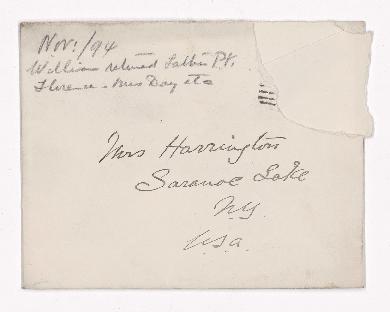 Nov. /94
William returned Falls P.V.
Florence - Mrs Day etc
Mrs Harrington
Saranac Lake
N.Y.
U.S.A.